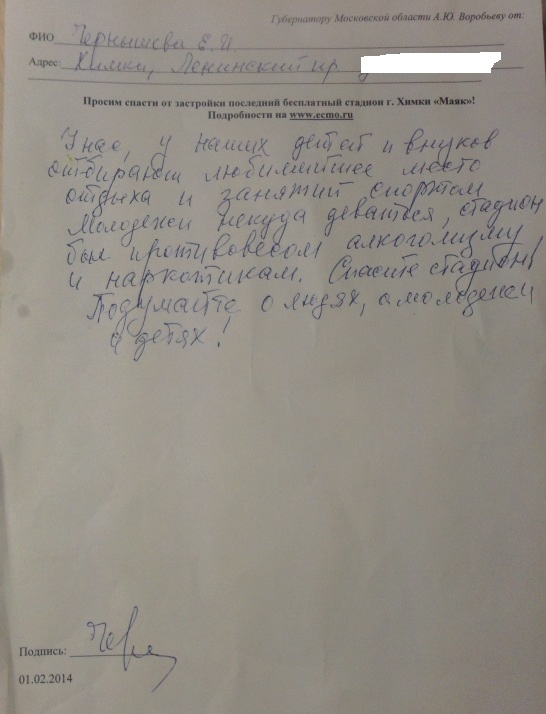 Губернатору Московской области А.Ю. Воробьеву от:
ФИО Чернышева Е.И.
Адрес: Химки, Ленинский пр
Просим спасти от застройки последний бесплатный стадион г. Химки «Маяк»!
Подробности на www.ecmo.ru
У нас, у наших детей и внуков
отбирают любимейшее место
отдыха и занятий спортом
Молодежи некуда деваться, стадион
был противовесом алкоголизму
и наркотикам. Спасите стадион!
Подумайте о людях, о молодежи
о детях!
Подпись:
01.02.2014